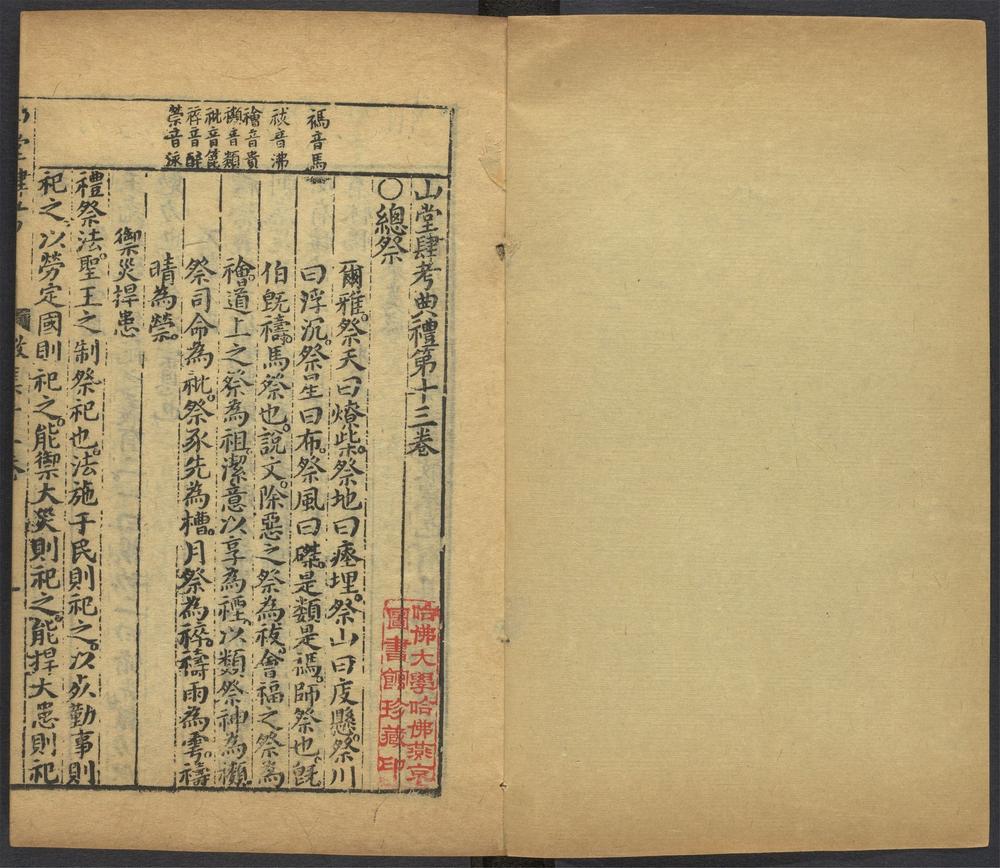 山堂肆考典禮第十三卷
〇總祭
爾雅祭天曰燎柴祭地曰瘞埋祭山曰庋懸祭川
曰浮沉祭星曰布祭風曰磔是類是禡師祭也旣
伯旣禱馬祭也說文除惡之祭為祓會福之祭為
禬道上之祭為祖潔意以享為禋以類祭神為禷
祭司命為祉祭豕先為槽月祭為䘹禱雨為雩禱
晴為禜
禦災捍患
禮祭法聖王之制祭祀也法施于民則祀之以死勤事則
祀之以勞定國則祀之能禦大災則祀之能捍大患則祀
禡音馬
祓音沸
禬音貴
禷音類
禜音泳
山堂肆考
哈佛大學哈佛燕京
圖書館珍藏印